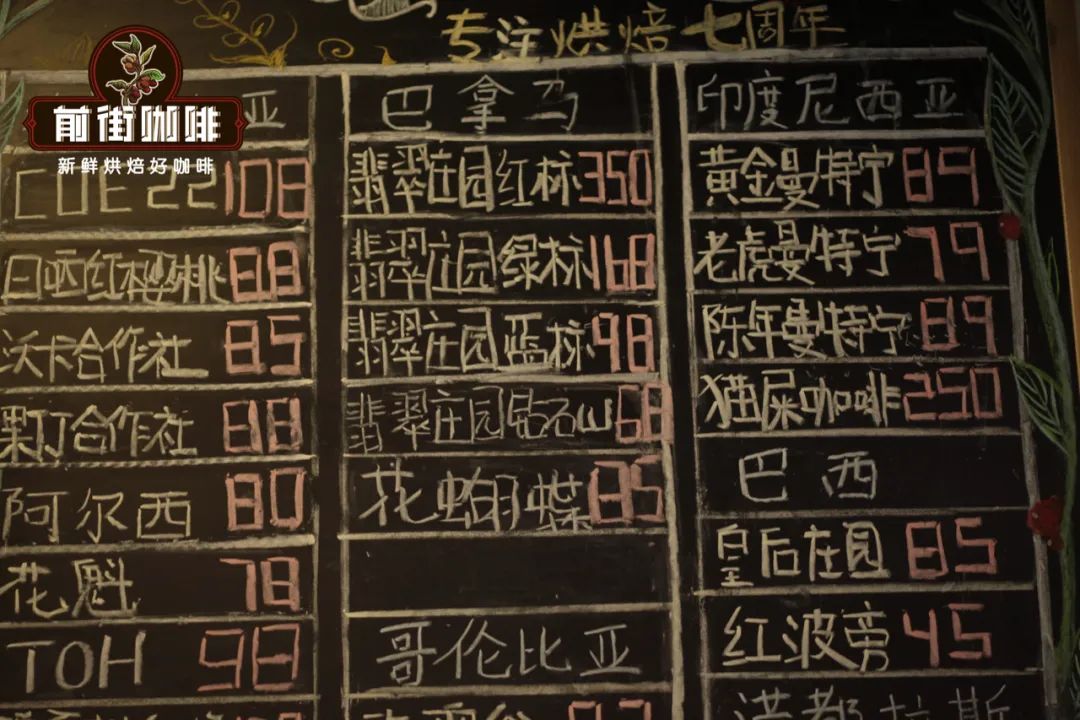 专注烘焙七周年
前街咖啡
新鲜烘焙好咖啡
亚
COE 22 108
日晒红樱桃 88
沃卡合作社 85
果丁合作社 88
阿尔西 80
花魁 78
TOH 98
巴拿马
翡翠庄园红标 350
翡翠庄园绿标 168
翡翠庄园蓝标 98
翡翠庄园钻石山 68
花蝴蝶 85
哥伦比亚
印度尼西亚
黄金曼特宁 89
老虎曼特宁 79
陈年曼特宁 89
猫屎咖啡 250
巴西
皇后庄园 85
红波旁 45
洪都拉斯